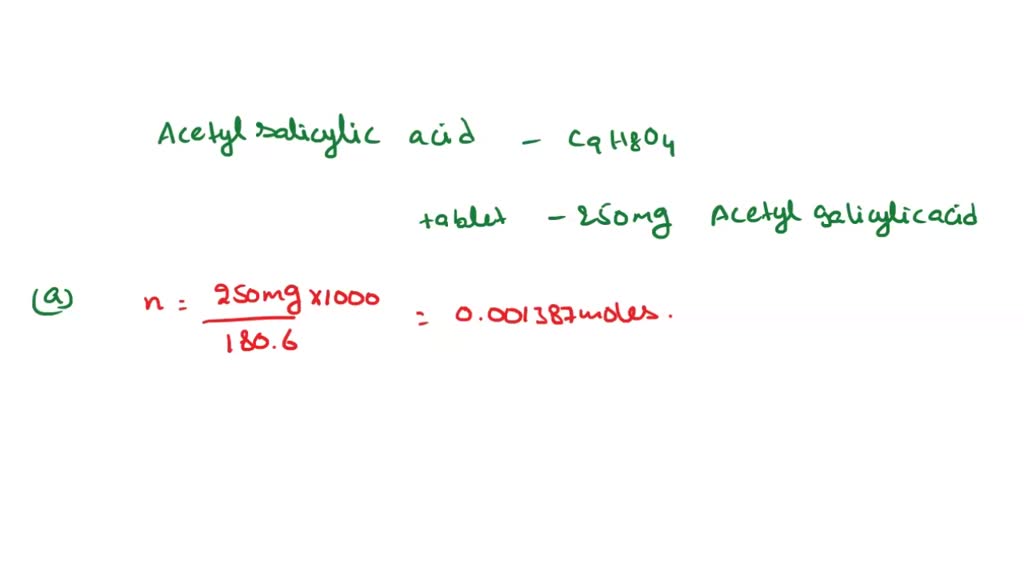 Acetyl salicylic acid - C9H8O4
tablet - 250mg Acetyl salicylic acid
(a) n = 250mg x1000 / 180.6 = 0.001387moles.